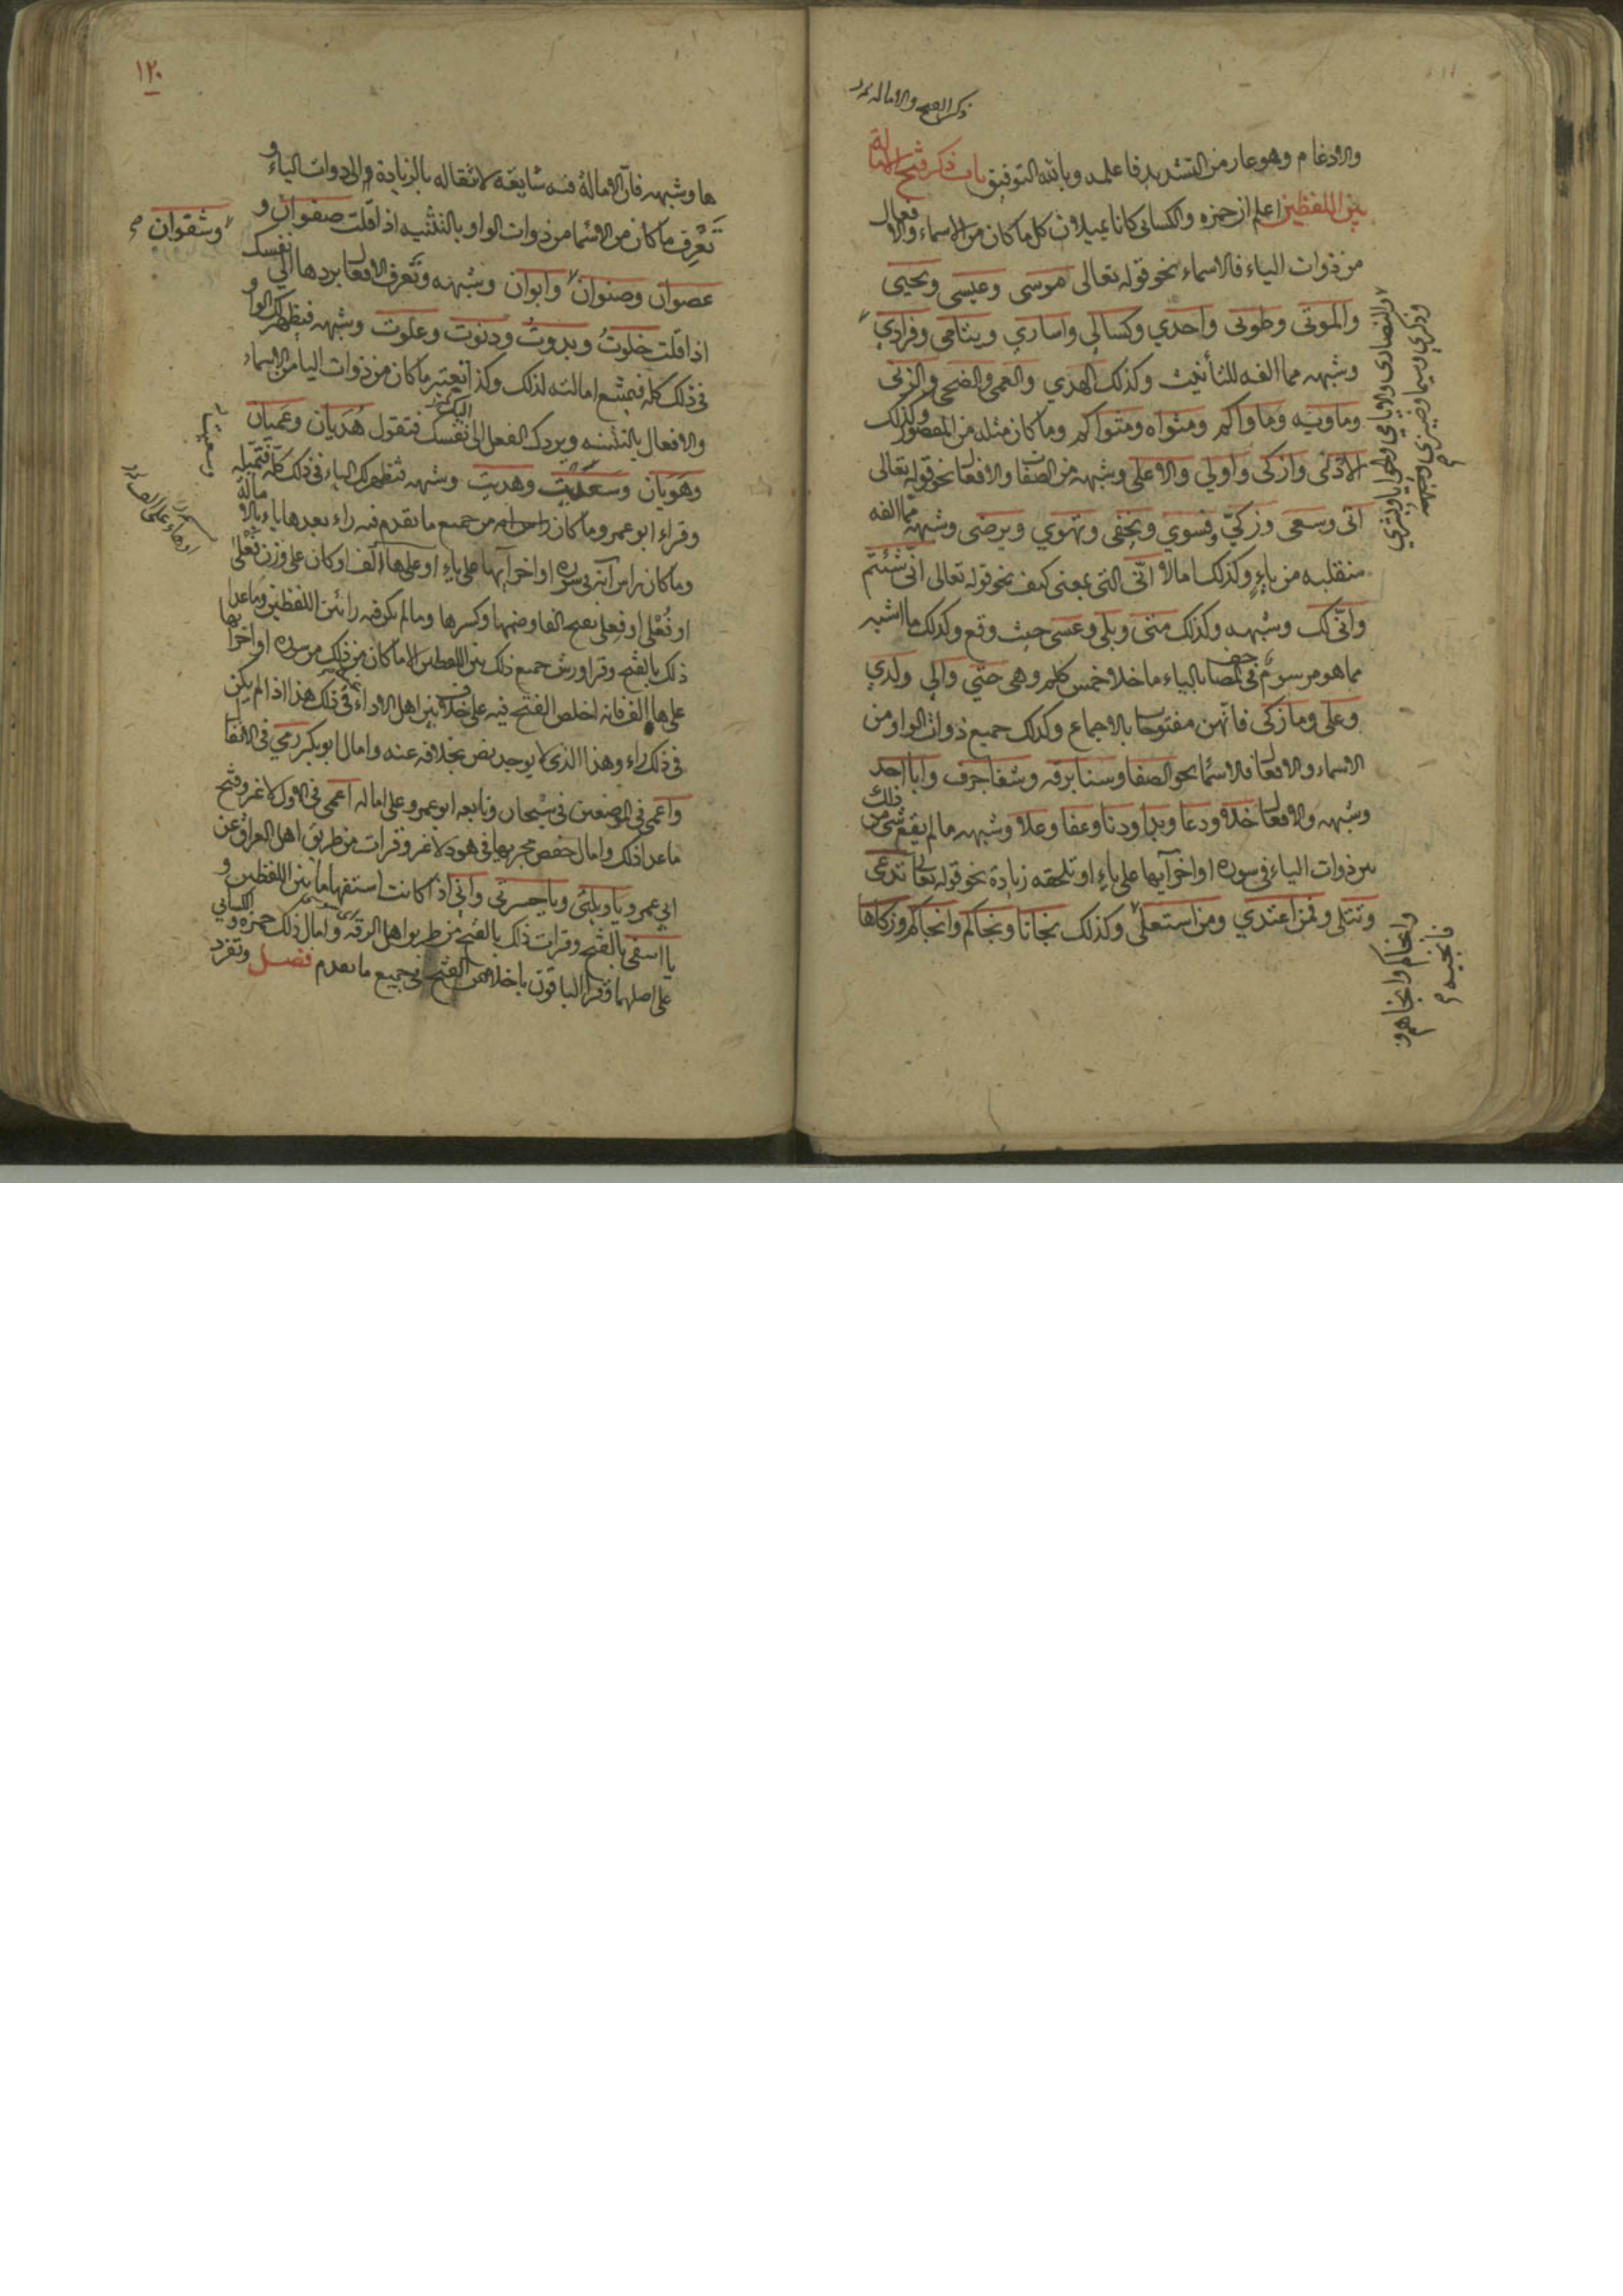 ذكر الفتح والاماله
والادغام وهو عار من التشديد فاعلمه وبالله التوفيق باب ذكر فتح الامالة
بين اللفظين اعلم ان حمزه والكسائى كانا يميلان كل ما كان من الاسماء والافعال
من ذوات الياء فالاسماء نحو قوله تعالى موسى وعيسى ويحيى
والموتى وطوبى واحدي وكسالي واساري ويتامى وفرادي
والنصارى والايامى والحوايا وبشري
وذكري وسيما وضيزي وشبهه
وشبهه مما الفه للتأنيث وكذلك الهدي والعمى والضحى والزنى
وماويه وماواكم ومثواه ومثواكم وما كان مثله من المقصور وكذلك
الادنى وازكى واولي والاعلى وشبهه من الصفات والافعال نحو قوله تعالى
اتى وسعى وزكيّ وفسوي ويخفى وتهوي ويرضى وشبهه مما الفه
منقلبه من ياءٍ وكذلك امالا انّى التى بمعنى كيف نحو قوله تعالى انى شئتم
وانّى لك وشبهه وكذلك متى وبلي وعسى حيث وقع وكذلك ما اشبهه
مما هو مرسومٌ فى المصاحف بالياء ما خلا خمس كلم وهى حتّي والي ولدي
وعلى وما زكى فانّهن مفتوحات بالاجماع وكذلك جميع ذوات الواو من
الاسماء والافعال فالاسما نحو الصفا وسنا برقه وشفا جرف وابا احد
وشبهه والافعال خلا ودعا وبدا ودنا وعفا وعلا وشبهه ما لم يقع شى من ذلك
بين ذوات الياء فى سوره اواخر آيها على ياءٍ او تلحقه زيادة نحو قوله تعالى تدعى
وتتلى وفمن اعتدي ومن استعلى وكذلك نجانا ونجاكم وانجاكم وزكاها
فانجيه
وانجاكم وانجاهم
١٢٠
ها وشبهه فانّ الامالة فيه شايعة لانتقاله بالزيادة والى ذوات الياء و
تَعْرِف ما كان من الاسما من ذوات الواو بالتثنيه اذا قلت صفوان و
وشقوان
عصوان وصنوان وابوان وشبهه وتعرف الافعال بردها الى نفسك
اذا قلت خلوتُ وبدوتُ ودنوت وعلوت وشبهه فيظهر لك الواو
فى ذلك كله فيمتنع امالته لذلك وكذا تعتبر ما كان من ذوات اليا من الاسماء
والافعال بالتثنيه وبردك الفعل الى نفسك فتقول هُدَيان وعَميَان
وهَوَيان وسَعَيْت وهديت وشبهه فتظهر لك الياء فى ذلك كله فتميله
وسعيت
وقراء ابو عمرو ما كان من جميع ما تقدم فيه راء بعدها ياء بالامالة
وما كان راس آية فى سوره اواخر آيها على ياءٍ او على ها الف او كان على وزن فَعْلى
او فُعْلى او فِعلى بفتح الفا وضمها وكسرها وما لم يكن فيه را بين اللفظين وما عدا
ذلك بالفتح وقرا ورش جميع ذلك بين اللفظين الا ما كان من ذلك من سوره اواخر آيها
على ها الف فانه اخلص الفتح فيه على خلاف بين اهل الاداء فى ذلك هذا اذا لم يكن
فى ذلك راء وهذا الذى لا يوجد نص بخلافه عنه وامال ابو بكر رمي فى الانفال
واعمى فى الموضعين فى سبحان وتابعه ابو عمرو على اماله اعمى فى الاول لا غير وفتح
ما عدا ذلك وامال حفص مجريها فى هود لا غير وقرات من طريق اهل العراق عن
ابى عمرو يا ويلتى ويا حسرتى وانّى اذا كانت استفهاما بين اللفظين و
يا اسفى بالفتح وقرات ذلك بالفتح من طريق اهل الرقه وامال ذلك حمزه والكسائي
على اصلهما وقرا الباقون باخلاص الفتح فى جميع ما تقدم فصل وتفرد